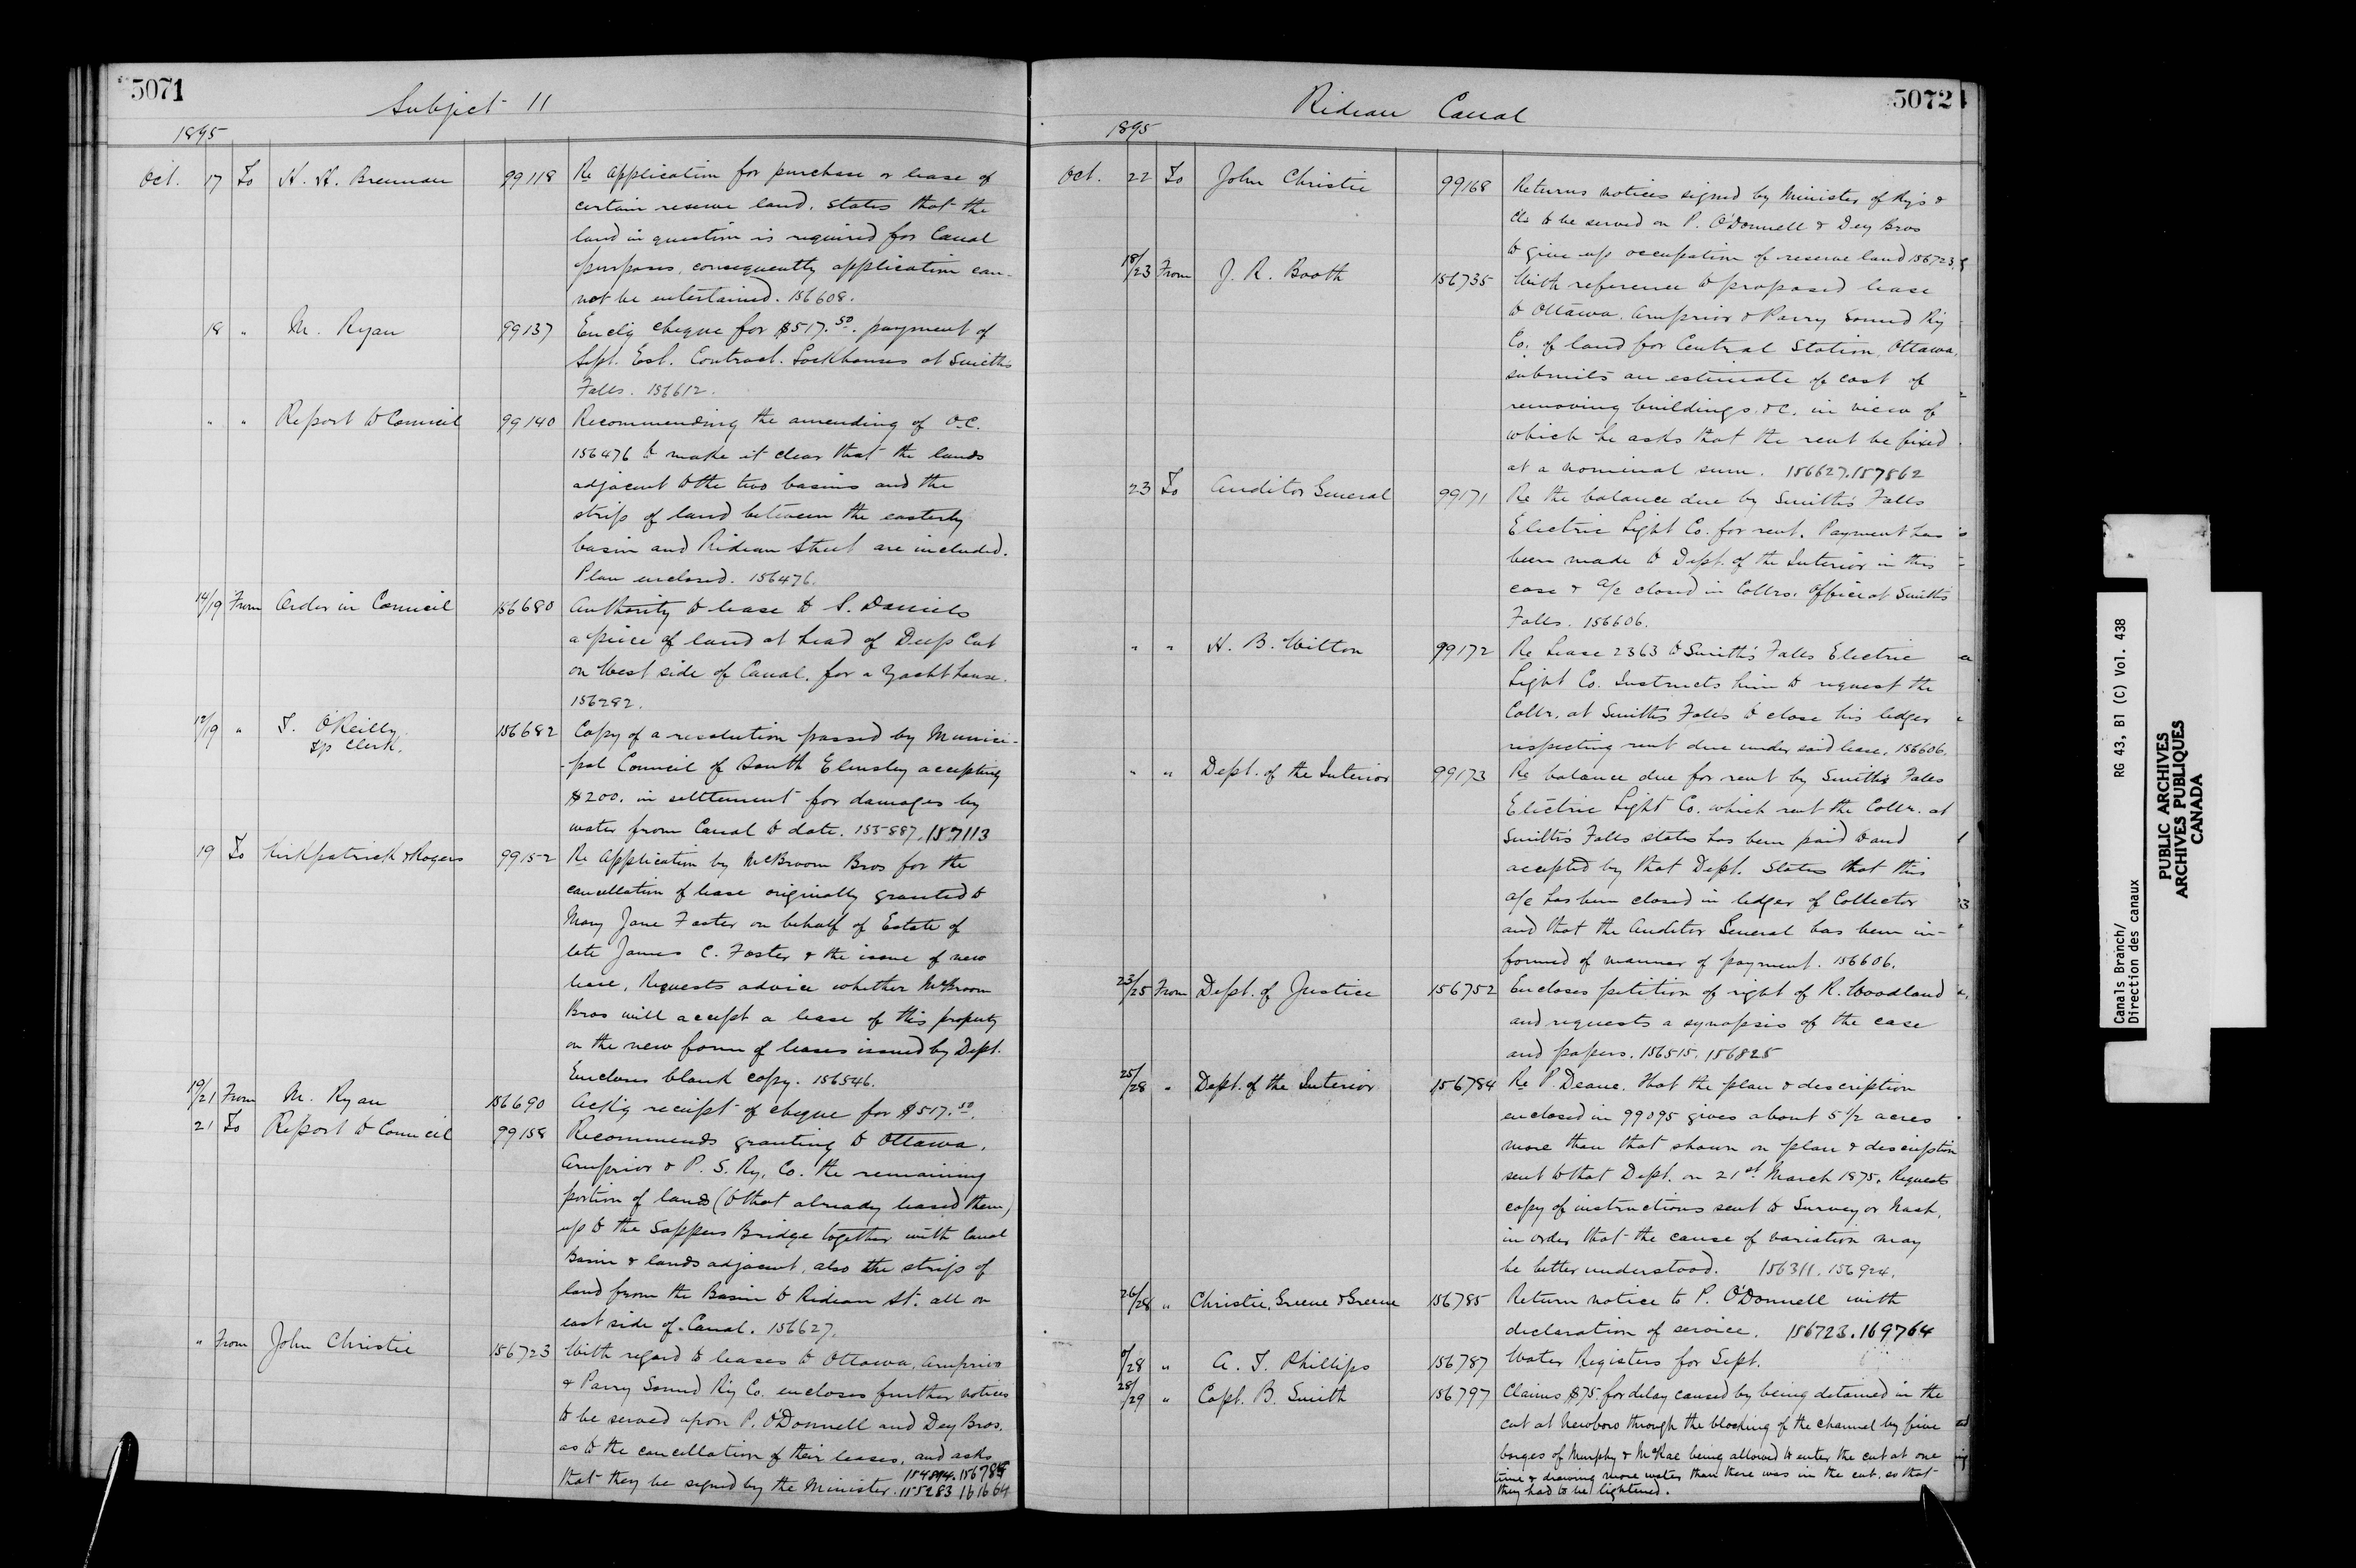 5071
Subject 11
1895
Oct. 17 To H. H. Brennan 99118 Re application for purchase or lease of
certain reserve land. States that the
land in question is required for Canal
purposes, consequently application can-
not be entertained. 156608.
18 " M. Ryan 99137 Enclg cheque for $517.50. payment of
Sept. Est. Contract. Lockhouses at Smith's
Falls. 156612.
" " Report to Council 99140 Recommending the amending of O.C.
156476 to make it clear that the lands
adjacent to the two basins and the
strip of land between the easterly
basin and Rideau Street are included.
Plan enclosed. 156476.
14/19 From Order in Council 156680 Authority to lease to S. Daniels
a piece of land at head of Deep Cut
on West side of Canal. for a Yacht house.
156282.
12/19 " T. O'Reilly 156682 Copy of a resolution passed by Munici-
Tp Clerk.
-pal Council of South Elmsley accepting
$200. in settlement for damages by
water from Canal to date. 155887. 157113
19 To Kirkpatrick & Rogers 99152 Re application by McBroom Bros for the
cancellation of lease originally granted to
Mary Jane Foster on behalf of Estate of
late James C. Foster & the issue of new
lease, Requests advice whether McBroom
Bros will accept a lease of this property
on the new form of leases issued by Dept.
Encloses blank copy. 156546.
19/21 From M. Ryan 156690 Ackg receipt of cheque for $517.50.
21 To Report to Council 99158 Recommends granting to Ottawa,
Arnprior & P. S. Ry. Co. the remaining
portion of lands (to that already leased them)
up to the Sappers Bridge together with Canal
Basin & lands adjacent, also the strip of
land from the Basin to Rideau St. all on
east side of Canal. 156627.
" From John Christie 156723 With regard to leases to Ottawa, Arnprior
& Parry Sound Ry Co. encloses further notices
to be served upon P. O'Donnell and Dey Bros.
as to the cancellation of their leases, and asks
that they be signed by the Minister. 155283 161664
5072
Rideau Canal
1895
Oct. 22 To John Christie 99168 Returns notices signed by Minister of Rys &
Cls to be served on P. O'Donnell & Dey Bros
to give up occupation of reserve land 156723.
18/23 From J. R. Booth 156735 With reference to proposed lease
to Ottawa, Arnprior & Parry Sound Ry
Co. of land for Central Station, Ottawa,
submits an estimate of cost of
removing buildings &c. in view of
which he asks that the rent be fixed
at a nominal sum. 156627.157862
23 To Auditor General 99171 Re the balance due by Smith's Falls
Electric Light Co. for rent. Payment has
been made to Dept. of the Interior in this
case & a/c closed in Collrs. Office at Smith's
Falls. 156606.
" " H. B. Wilton 99172 Re Lease 2363 to Smith's Falls Electric
Light Co. Instructs him to request the
Collr. at Smith's Falls to close his ledger
respecting rent due under said lease. 156606.
" " Dept. of the Interior 99173 Re balance due for rent by Smith's Falls
Electric Light Co. which rent the Collr. at
Smith's Falls states has been paid to and
accepted by that Dept. States that this
a/c has been closed in ledger of Collector
and that the Auditor General has been in-
formed of manner of payment. 156606.
23/25 From Dept. of Justice 156752 Encloses petition of right of R. Woodland
and requests a synopsis of the case
and papers. 156515. 156825
25/28 " Dept. of the Interior 156784 Re P. Deane. That the plan & description
enclosed in 99095 gives about 5 1/2 acres
more than that shown on plan & description
sent to that Dept. on 21st March 1875. Requests
copy of instructions sent to Surveyor Nash,
in order that the cause of variation may
be better understood. 156311. 156924.
26/28 " Christie, Greene & Greene 156785 Return notice to P. O'Donnell with
declaration of service. 156723.169764
/28 " A. T. Phillips 156787 Water Registers for Sept.
28/29 " Capt. B. Smith 156797 Claims $75. for delay caused by being detained in the
cut at Newboro through the blocking of the channel by five
barges of Murphy & McRae being allowed to enter the cut at one
time & drawing more water than there was in the cut, so that
they had to be lightened.
Canals Branch/ RG 43, B1 (C) Vol. 438
Direction des canaux
PUBLIC ARCHIVES
ARCHIVES PUBLIQUES
CANADA